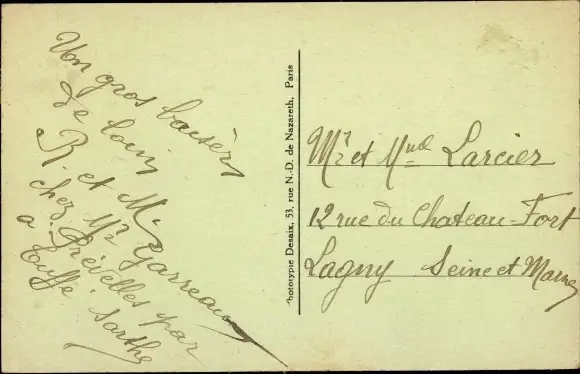 Un gros baisers
de loin
R. et M.
chez Mr Garreau
a Prévelles par
Tuffé Sarthe
Phototypie Desaix, 53, rue N.-D. de Nazareth, Paris
Mr et Mme Larcier
12 rue du Chateau-Fort
Lagny Seine et Marne